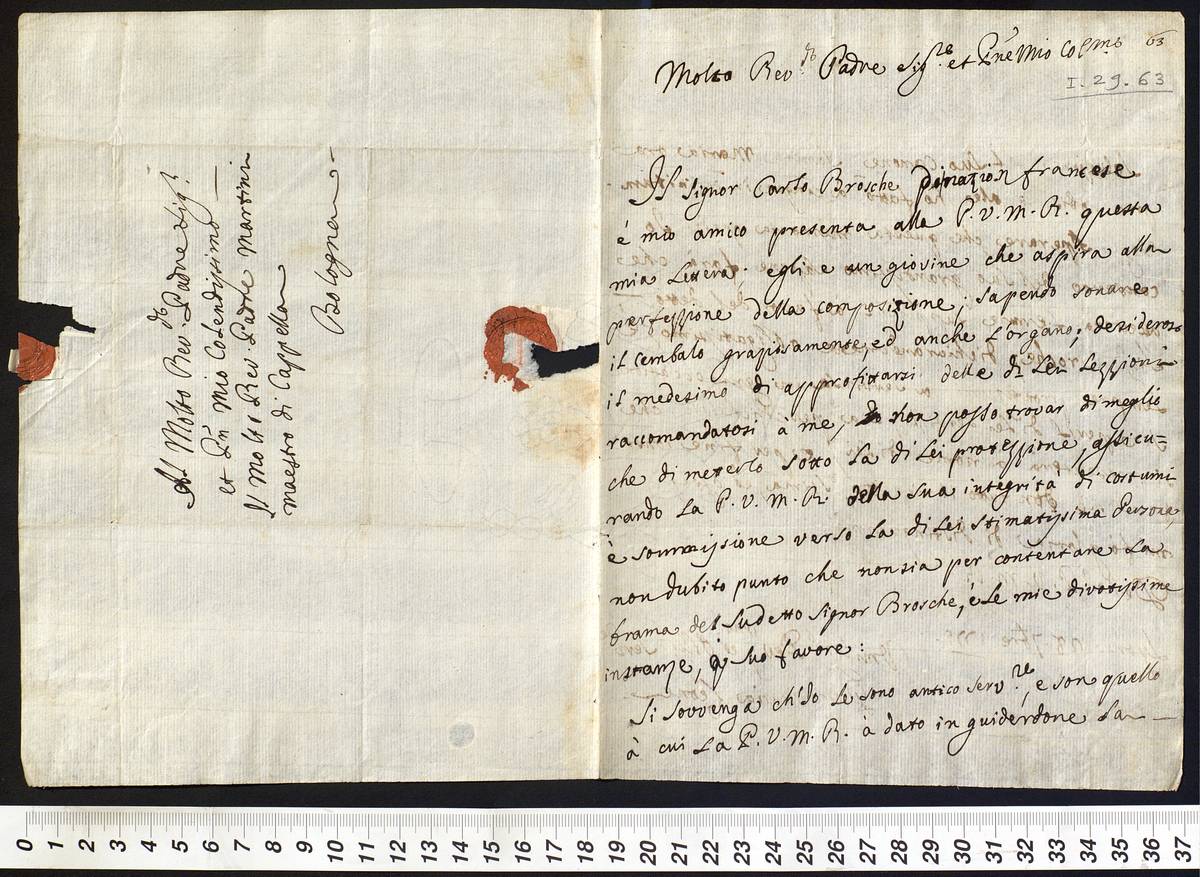 Al Molto Rev.do Padre Sig.r
et Pñ Mio Colendissimo —
Il Molto Rev. Padre Martini
Maestro di Cappella
Bologna —
Molto Rev.do Padre Sig.re et Pñe Mio Colmo
63
I. 29. 63
Il Signor Carlo Brosche di nazion francese
è mio amico presenta alla P. V. M. R. questa
mia Lettera; egli è un giovine che aspira alla
perfezzione della composizione; sapendo sonare
il cembalo graziosamente, ed anche L'organo; desideroso
il medesimo di approfittarsi delle di Lei Lezzioni
raccomandatosi à me, Io non posso trovar di meglio
che di meterlo sotto La di Lei protezzione, assicu=
rando La P. V. M. R. della sua integrità di costumi
è sommissione verso La di Lei stimatissima Perzona,
non dubito punto che non sia per contentare La
brama del sudetto Signor Brosche, è Le mie divotissime
instanze, à suo favore:
Si sovvenga ch'Io Le sono antico serv.re, e son quello
à cui La P. V. M. R. à dato in guiderdone La —